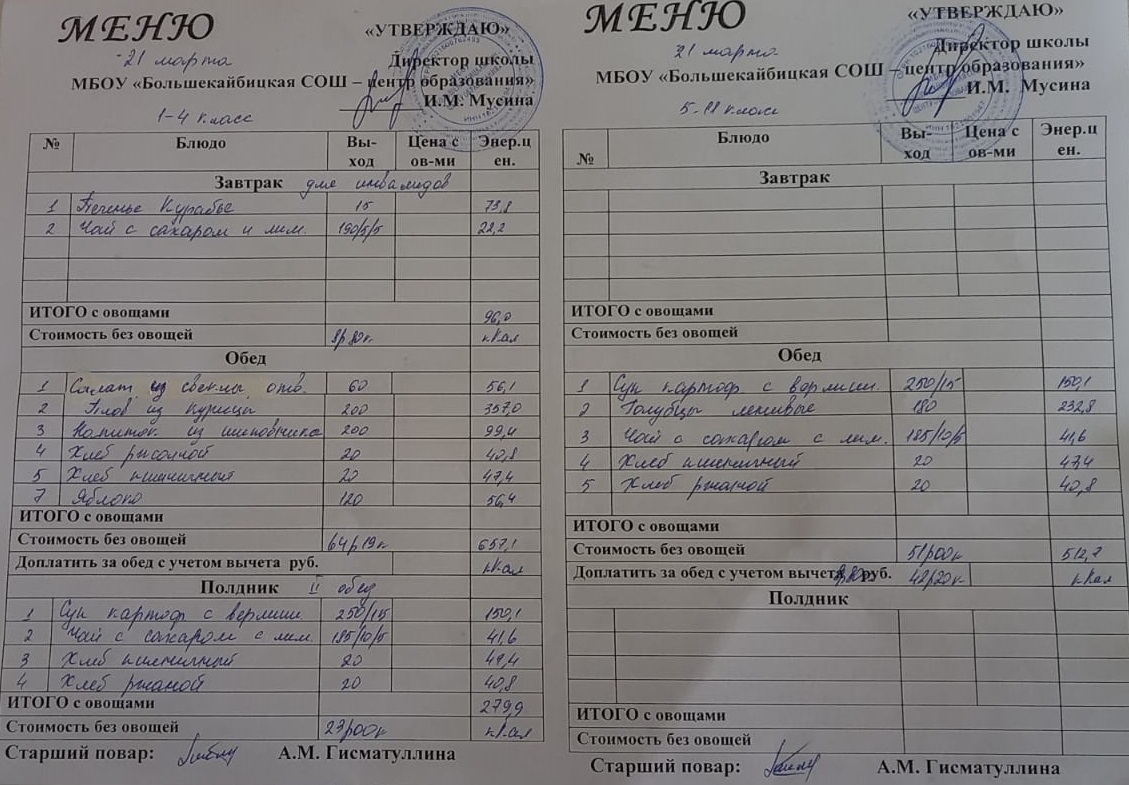 МЕНЮ
«УТВЕРЖДАЮ»
21 марта
Директор школы
МБОУ «Большекайбицкая СОШ – центр образования»
И.М. Мусина
1-4 класс
№ Блюдо Вы-ход Цена с ов-ми Энер.цен.
Завтрак для инвалидов
1 Печенье Курабье 15 73,8
2 Чай с сахаром и лим. 190/5/5 22,2
ИТОГО с овощами 96,0
Стоимость без овощей 8р80к кКал
Обед
1 Салат из свеклы отв. 60 56,1
2 Плов из курицы 200 357,0
3 Напиток из шиповника 200 99,4
4 Хлеб ржаной 20 40,8
5 Хлеб пшеничный 20 47,4
7 Яблоко 120 56,4
ИТОГО с овощами
Стоимость без овощей 64р19к 657,1
Доплатить за обед с учетом вычета руб. кКал
Полдник II обед
1 Суп картоф с вермиш. 250/15 150,1
2 Чай с сахаром с лим. 185/10/5 41,6
3 Хлеб пшеничный 20 47,4
4 Хлеб ржаной 20 40,8
ИТОГО с овощами 279,9
Стоимость без овощей 23р00к кКал
Старший повар: А.М. Гисматуллина
МЕНЮ
«УТВЕРЖДАЮ»
21 марта
Директор школы
МБОУ «Большекайбицкая СОШ – центр образования»
И.М. Мусина
5-11 класс
№ Блюдо Вы-ход Цена с ов-ми Энер.цен.
Завтрак
ИТОГО с овощами
Стоимость без овощей
Обед
1 Суп картоф с вермиш. 250/15 150,1
2 Голубцы ленивые 180 232,8
3 Чай с сахаром с лим. 185/10/5 41,6
4 Хлеб пшеничный 20 47,4
5 Хлеб ржаной 20 40,8
ИТОГО с овощами
Стоимость без овощей 51р00к 512,7
Доплатить за обед с учетом вычета руб. 42р20к кКал
Полдник
ИТОГО с овощами
Стоимость без овощей
Старший повар: А.М. Гисматуллина